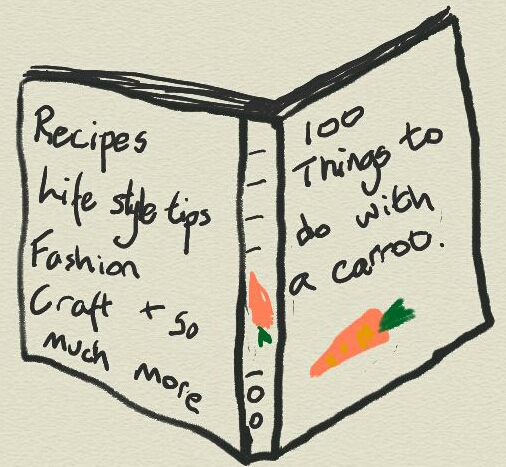 Recipes
Life style tips
Fashion
Craft + so
much more
100
100
Things to
do with
a carrot.